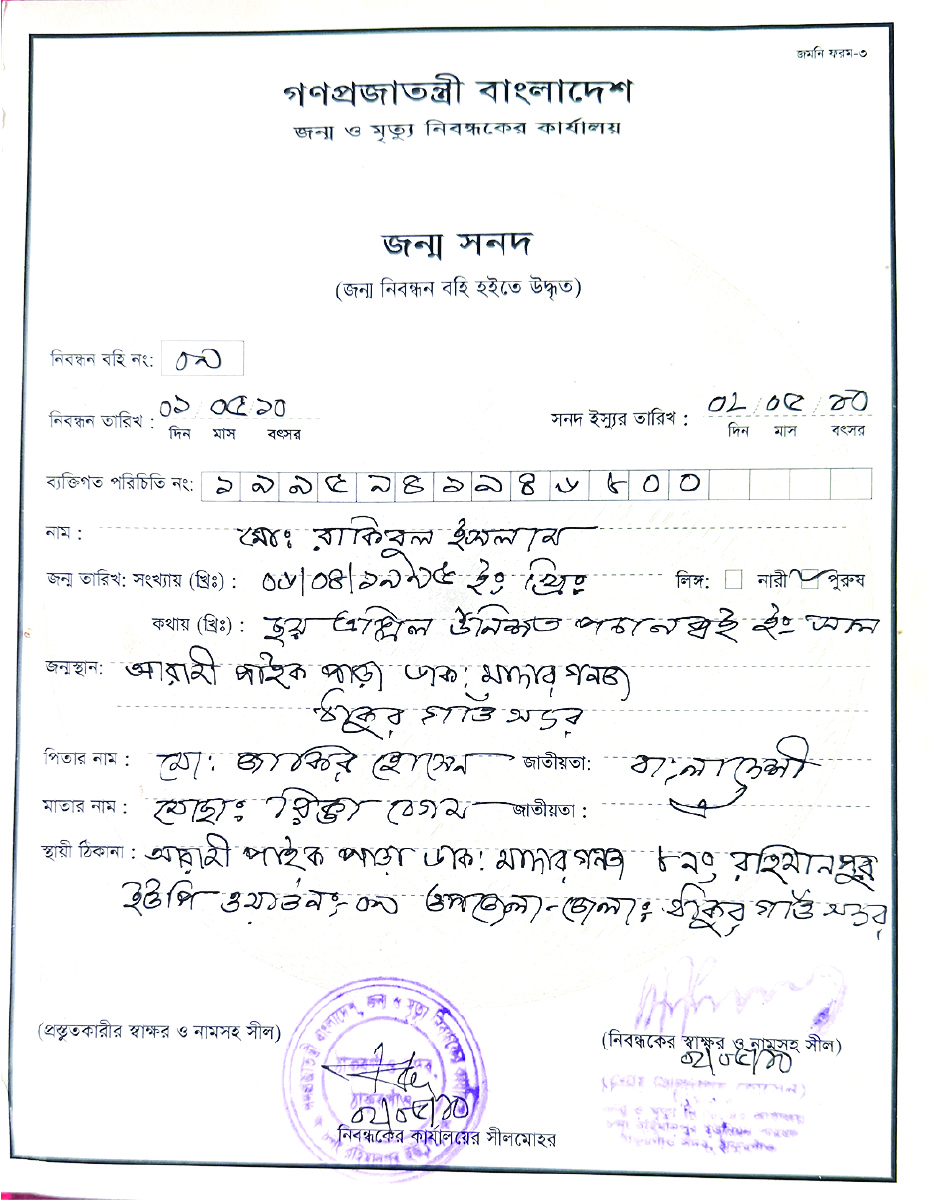 জমনি ফরম-৩
গণপ্রজাতন্ত্রী বাংলাদেশ
জন্ম ও মৃত্যু নিবন্ধকের কার্যালয়
জন্ম সনদ
(জন্ম নিবন্ধন বহি হইতে উদ্ধৃত)
নিবন্ধন বহি নং: ০৯
নিবন্ধন তারিখ : ০১ ০৫ ১০ সনদ ইস্যুর তারিখ : ০২ / ০৫ / ১০
দিন মাস বৎসর দিন মাস বৎসর
ব্যক্তিগত পরিচিতি নং: ১ ৯ ৯ ৫ ৯ ৪ ১ ৯ ৪ ৬ ৮ ০ ০
নাম : মোঃ রাকিবুল ইসলাম
জন্ম তারিখ: সংখ্যায় (খ্রিঃ) : ০৬/০৪/১৯৯৫ ইং খ্রিঃ লিঙ্গ: নারী পুরুষ
কথায় (খ্রিঃ) : ছয় এপ্রিল উনিশত পচানব্বই ইং সাল
জন্মস্থান: আরাজী পাইক পাড়া ডাক: মাদারগনজ
ঠাকুর গাঁও সদর
পিতার নাম : মো: জাকির হোসেন জাতীয়তা: বাংলাদেশী
মাতার নাম : মোছাঃ রিক্তা বেগম জাতীয়তা :
স্থায়ী ঠিকানা : আরাজী পাইক পাড়া ডাক: মাদারগনজ ৮নং রহিমানপুর
ইউপি ওয়ার্ড নং- ০৯ উপজেলা-জেলাঃ ঠাকুর গাঁও সদর
(প্রস্তুতকারীর স্বাক্ষর ও নামসহ সীল) (নিবন্ধকের স্বাক্ষর ও নামসহ সীল)
০২/০৫/১০
০২/০৫/১০
নিবন্ধকের কার্যালয়ের সীলমোহর